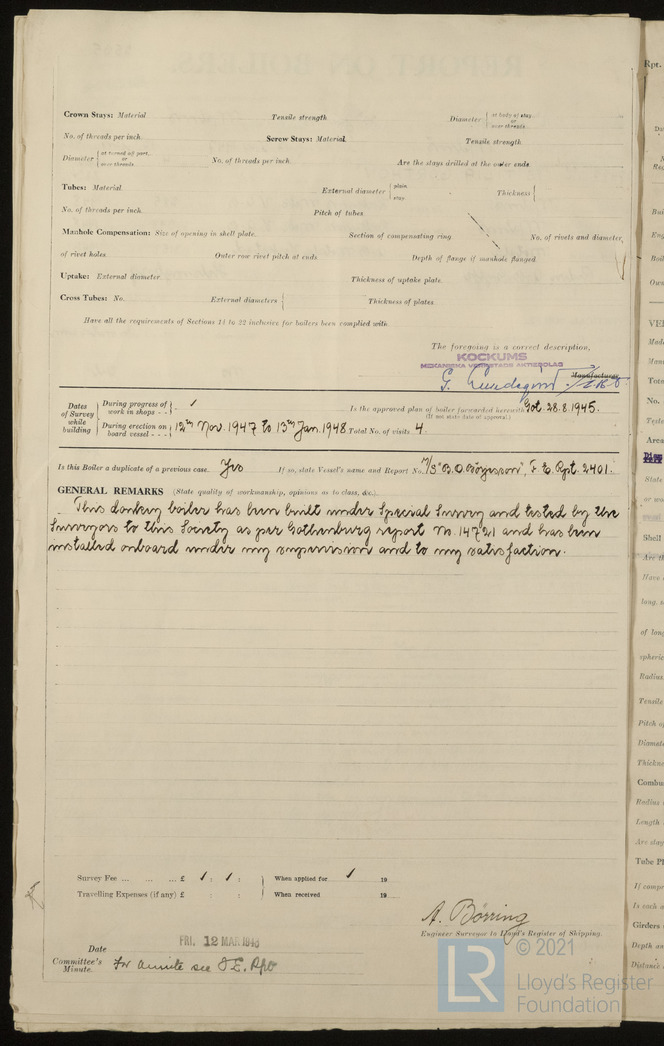 Crown Stays: Material Tensile strength Diameter at body of stay or over threads
No. of threads per inch. Screw Stays: Material Tensile strength
Diameter at turned off part or over threads No. of threads per inch. Are the stays drilled at the outer ends
Tubes: Material External diameter plain stay Thickness
No. of threads per inch. Pitch of tubes
Manhole Compensation: Size of opening in shell plate. Section of compensating ring No. of rivets and diameter
of rivet holes. Outer row rivet pitch at ends. Depth of flange if manhole flanged
Uptake: External diameter Thickness of uptake plate.
Cross Tubes: No. External diameters Thickness of plates
Have all the requirements of Sections 14 to 22 inclusive for boilers been complied with.
The foregoing is a correct description,
KOCKUMS
MEKANISKA VERKSTADS AKTIEBOLAG
Manufacturer.
Dates of Survey while building
During progress of work in shops - - /
Is the approved plan of boiler forwarded herewith Got. 28.8.1945.
(If not state date of approval.)
During erection on board vessel - - - 12th Nov. 1947 to 13th Jan. 1948 Total No. of visits 4
Is this Boiler a duplicate of a previous case. Yes If so, state Vessel's name and Report No. M/S "B.O. Börjesson", F.E. Rpt. 2401.
GENERAL REMARKS (State quality of workmanship, opinions as to class, &c.)
This donkey boiler has been built under Special Survey and tested by the
Surveyors to this Society as per Gothenburg report No. 14721 and has been
installed onboard under my supervision and to my satisfaction.
Survey Fee ... ... ... £ / : / : When applied for / 19
Travelling Expenses (if any) £ : : When received 19
A. Börring
Engineer Surveyor to Lloyd's Register of Shipping.
Date FRI. 12 MAR 1948
Committee's Minute. For minute see F.E. Rpt
© 2021
LR
Lloyd's Register
Foundation
Rpt.